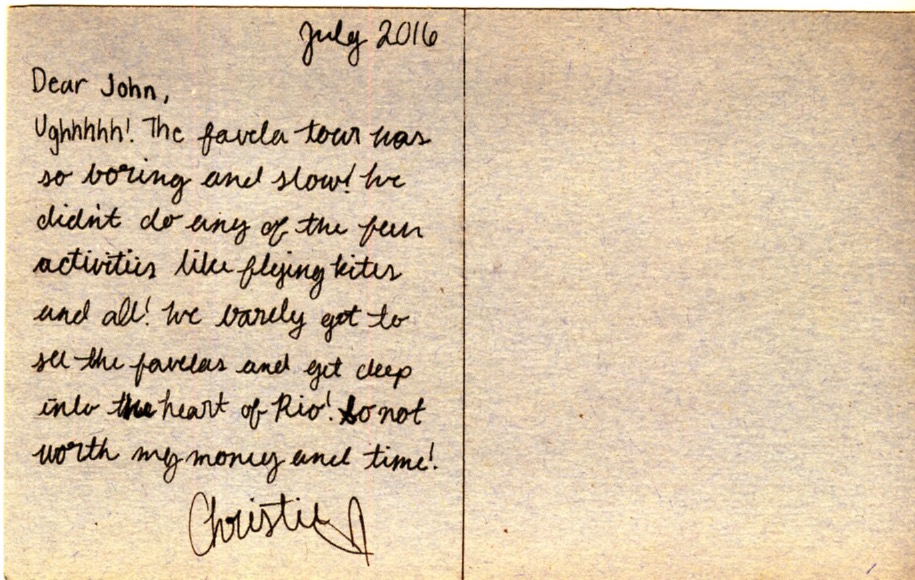 July 2016
Dear John,
Ughhhhh! The favela tour was
so boring and slow! We
didn't do any of the fun
activities like flying kites
and all! We barely got to
see the favelas and get deep
into the heart of Rio! So not
worth my money and time!
Christie